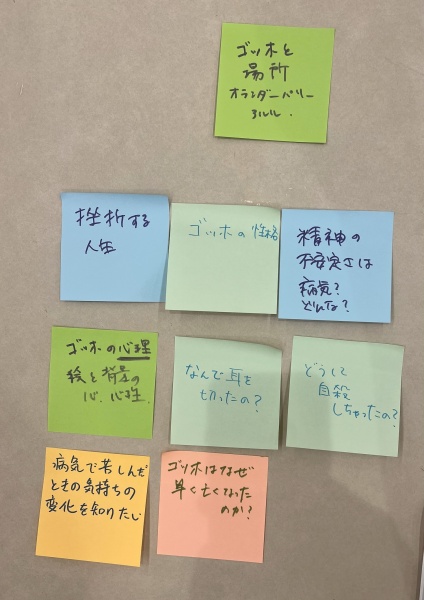 ゴッホと
場所
オランダーパリー
アルル.
挫折する
人生
ゴッホの性格
精神の
不安定さは
病気?
どんな?
ゴッホの心理
絵と背景の
心. 心理.
なんで耳を
切ったの?
どうして
自殺
しちゃったの?
病気で苦しんだ
ときの気持ちの
変化を知りたい
ゴッホはなぜ
早く亡くなった
のか?